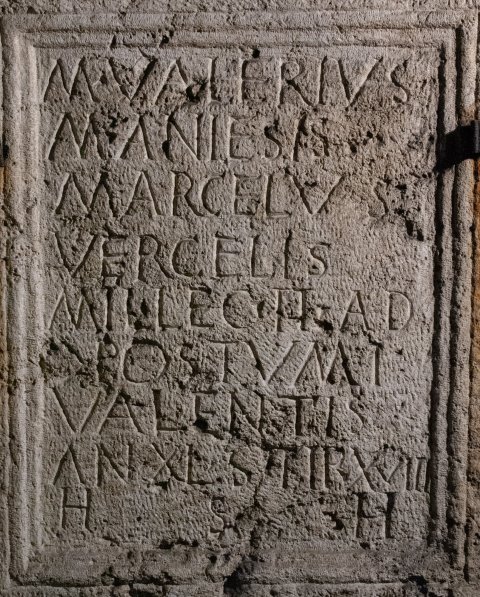 M·VALERIVS
M·ANIESIS
MARCELVS
VERCELIS
MIL·LEG·II·AD
POSTVMI
VALENTIS
AN·XL·STIP·XVII
H S H